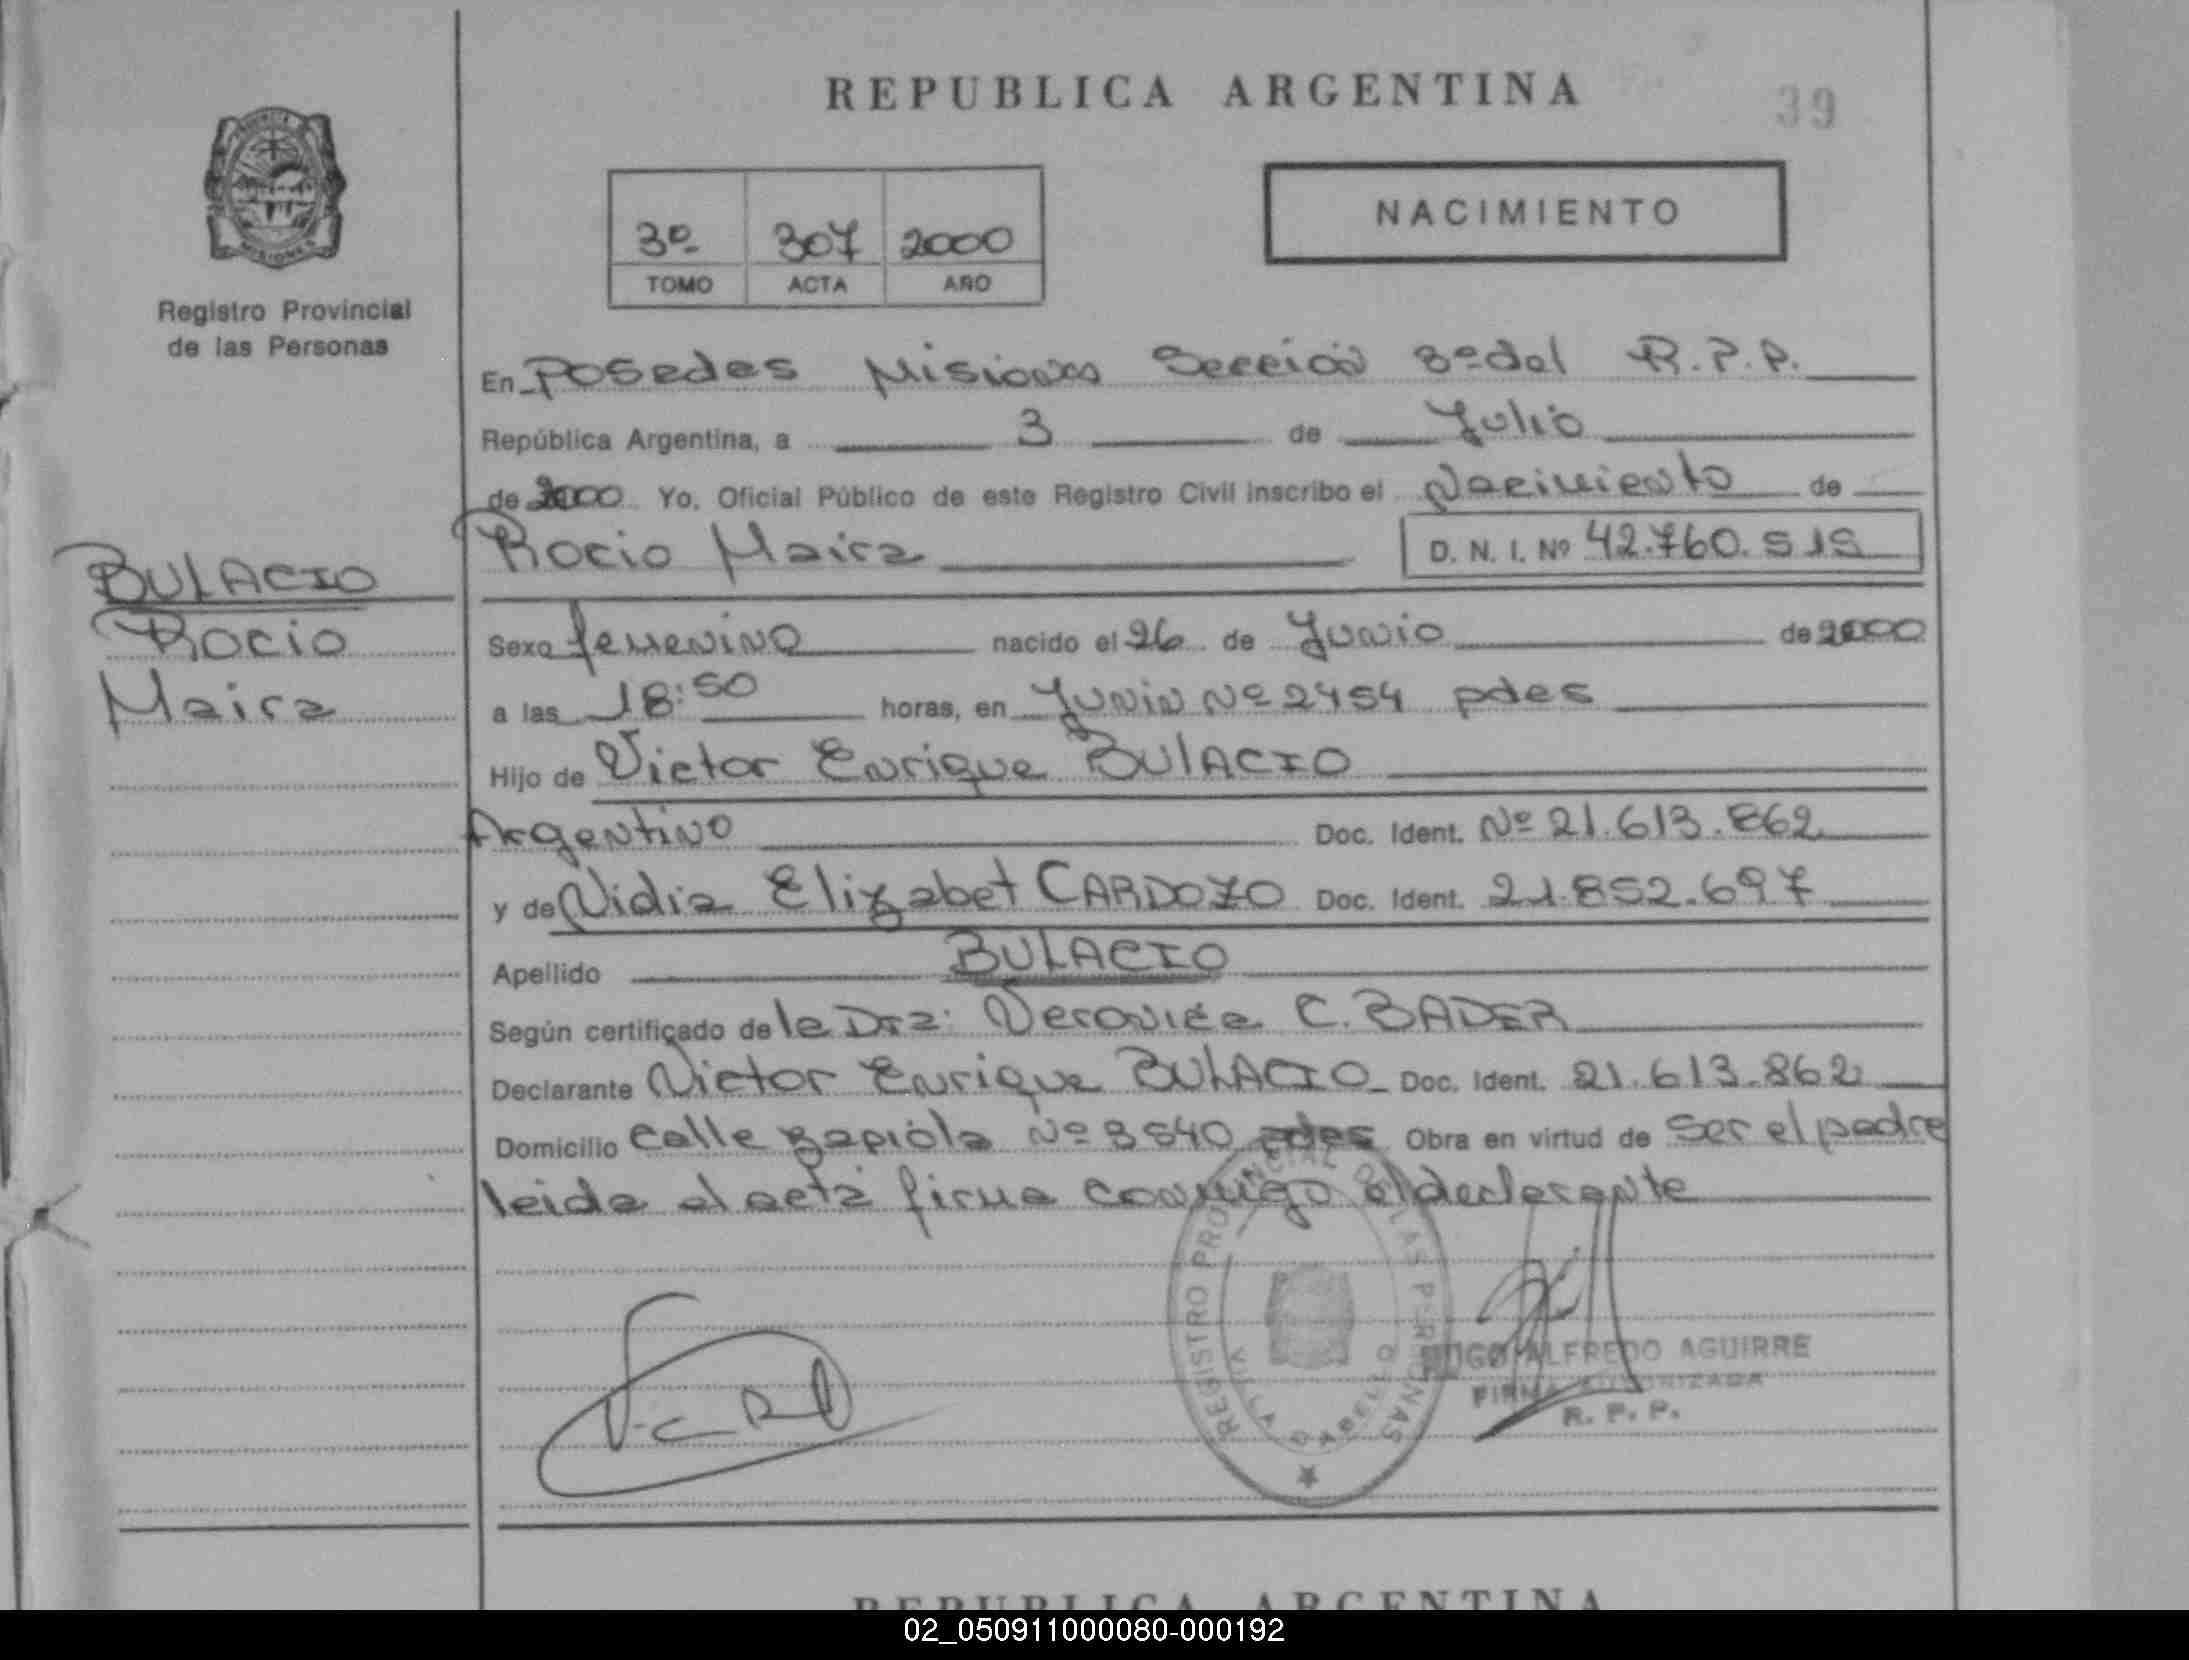 REPUBLICA ARGENTINA
39
3º 307 2000
TOMO ACTA AÑO
NACIMIENTO
Registro Provincial
de las Personas
En Posedes Misiones Sección 3º del R.P.P.
República Argentina, a 3 de Julio
de 2000 Yo, Oficial Público de este Registro Civil inscribo el Nacimiento de
Rocio Maira D. N. I. Nº 42.760.515
BULACIO
Rocio
Maira
Sexo femenino nacido el 26 de Junio de 2000
a las 18:50 horas, en Junin Nº 2454 pdes
Hijo de Victor Enrique BULACIO
Argentino Doc. Ident. Nº 21.613.862
y de Nidia Elizabet CARDOZO Doc. Ident. 21.852.697
Apellido BULACIO
Según certificado de la Dra: Veronica C. BADER
Declarante Victor Enrique BULACIO Doc. Ident. 21.613.862
Domicilio calle zapiola Nº 3540 pdes Obra en virtud de ser el padre
leida el acta firma conmigo el declarante
REGISTRO PROVINCIAL DE LAS PERSONAS
VILLA CABELLO
HUGO ALFREDO AGUIRRE
FIRMA AUTORIZADA
R. P. P.
REPUBLICA ARGENTINA
02_050911000080-000192